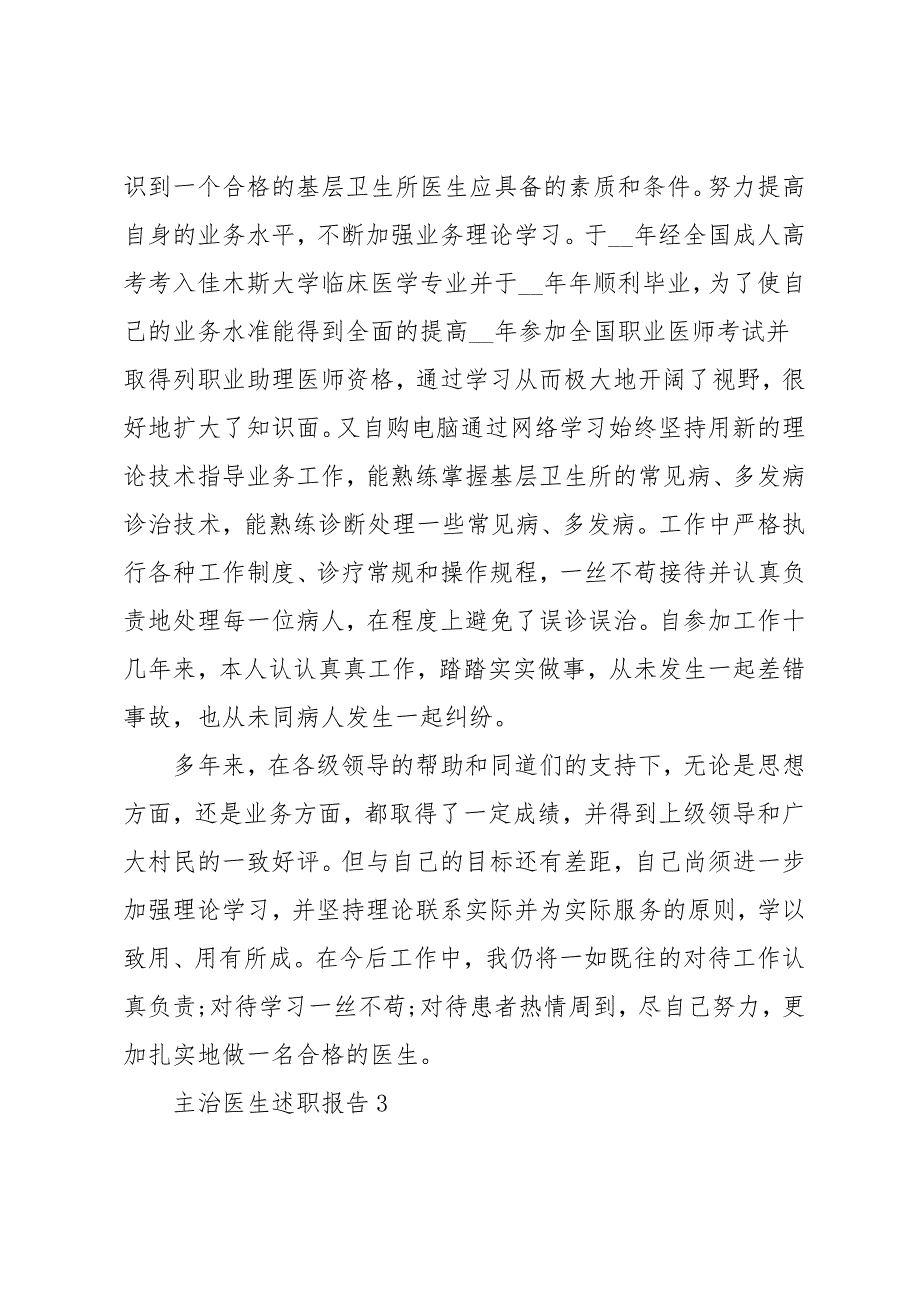 识到一个合格的基层卫生所医生应具备的素质和条件。努力提高
自身的业务水平，不断加强业务理论学习。于__年经全国成人高
考考入佳木斯大学临床医学专业并于__年年顺利毕业，为了使自
己的业务水准能得到全面的提高__年参加全国职业医师考试并
取得列职业助理医师资格，通过学习从而极大地开阔了视野，很
好地扩大了知识面。又自购电脑通过网络学习始终坚持用新的理
论技术指导业务工作，能熟练掌握基层卫生所的常见病、多发病
诊治技术，能熟练诊断处理一些常见病、多发病。工作中严格执
行各种工作制度、诊疗常规和操作规程，一丝不苟接待并认真负
责地处理每一位病人，在程度上避免了误诊误治。自参加工作十
几年来，本人认认真真工作，踏踏实实做事，从未发生一起差错
事故，也从未同病人发生一起纠纷。
多年来，在各级领导的帮助和同道们的支持下，无论是思想
方面，还是业务方面，都取得了一定成绩，并得到上级领导和广
大村民的一致好评。但与自己的目标还有差距，自己尚须进一步
加强理论学习，并坚持理论联系实际并为实际服务的原则，学以
致用、用有所成。在今后工作中，我仍将一如既往的对待工作认
真负责;对待学习一丝不苟;对待患者热情周到，尽自己努力，更
加扎实地做一名合格的医生。
主治医生述职报告 3